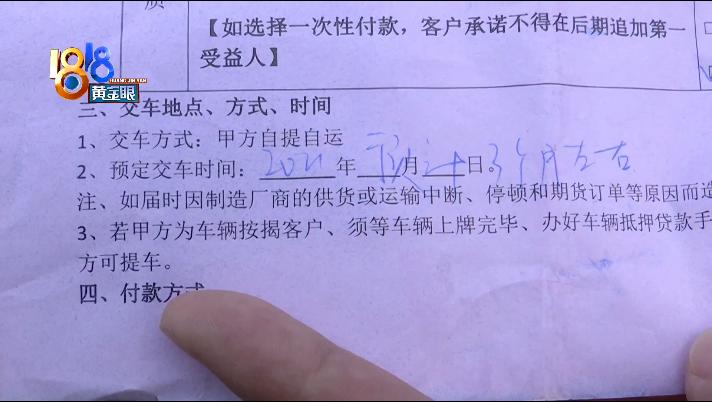 质
【如选择一次性付款，客户承诺不得在后期追加第一
受益人】
1818
HUANG JIN YAN
黄金眼
三、交车地点、方式、时间
1、交车方式：甲方自提自运
2、预定交车时间：2021年预计月日。3个月左右
注、如届时因制造厂商的供货或运输中断、停顿和期货订单等原因而造
3、若甲方为车辆按揭客户、须等车辆上牌完毕、办好车辆抵押贷款手
方可提车。
四、付款方式